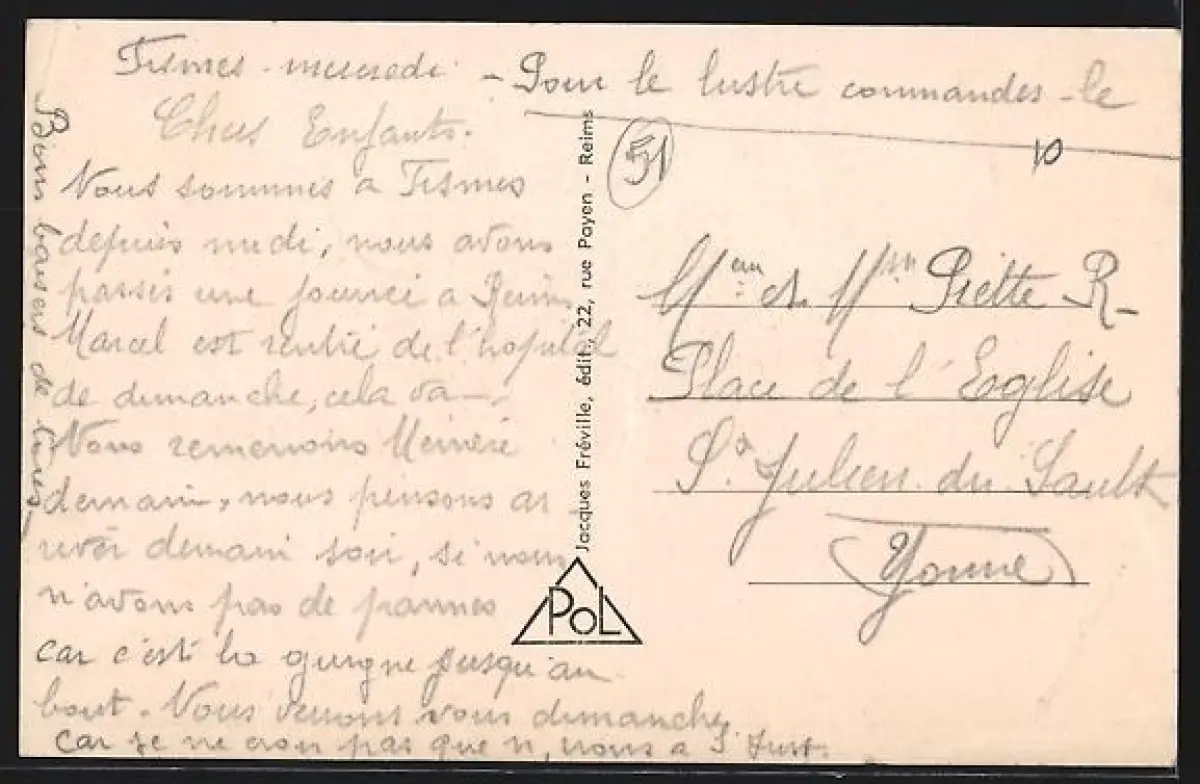 Fismes - mercredi
Chers Enfants.
Nous sommes a Fismes
depuis midi, nous avons
passés une journeé a Reims
Marcel est rentré de l'hopital
de dimanche, cela va -
Nous remenons
demain, nous pensons ar
river demain soir, si nous
n'avons pas de pannes
car c'est la guigne jusqu'au
bout. Nous verrons vous dimanche
car je ne crois pas que n, nous a S. Just.
Bons baisers de
- Pour le lustre commandes - le
51
10
Jacques Fréville, édit., 22, rue Payen - Reims
POL
et Piette R-
Place de l'Eglise
St Julien du Sault
Yonne